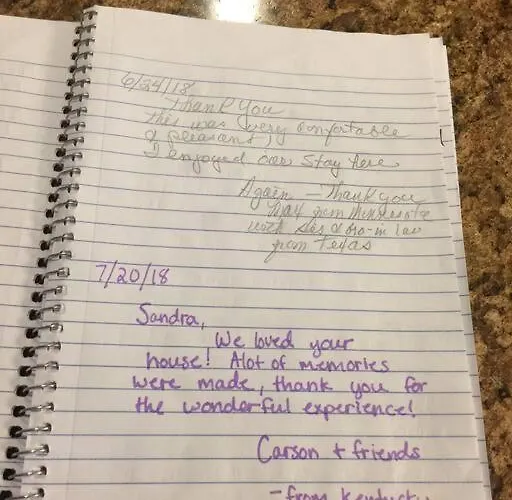 6/24/18
Thank You
this was (very comfortable
& pleasant)
I enjoyed our Stay here
Again - Thank you
from Minnesota
with Sis & bro-in law
from Texas
7/20/18
Sandra,
We loved your
house! Alot of memories
were made, thank you for
the wonderful experience!
Carson + friends
- from Kentucky